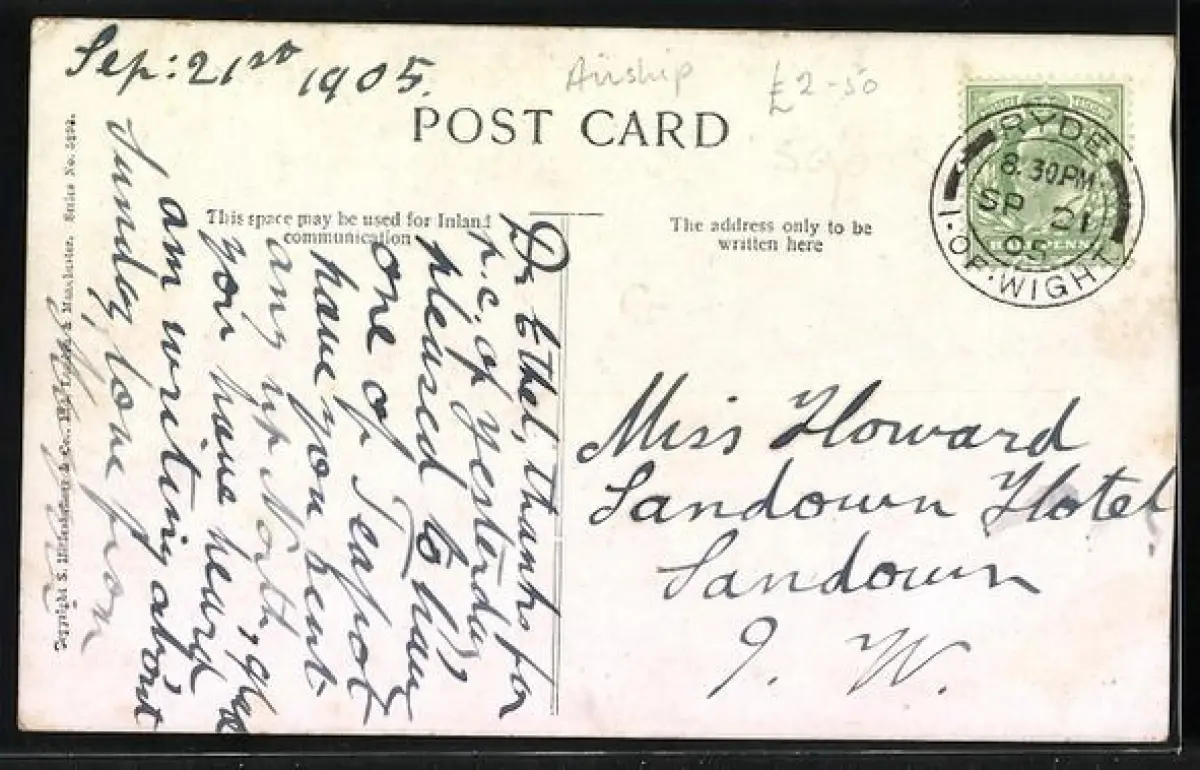 Sep: 21st 1905.
Airship £2-50
POST CARD
This space may be used for Inland
communication
The address only to be
written here
RYDE
8.30PM
SP 21
05
I. OF. WIGHT
HALFPENNY
Dr Ethel, thanks for
p.c. of yesterday,
pleased to have
one of Teapot
have you sent
any up North, glad
you have heard
am writing about
Sunday, love from
Miss Howard
Sandown Hotel
Sandown
I. W.
Copyright S. Hildesheimer & Co., London & Manchester. Series No.